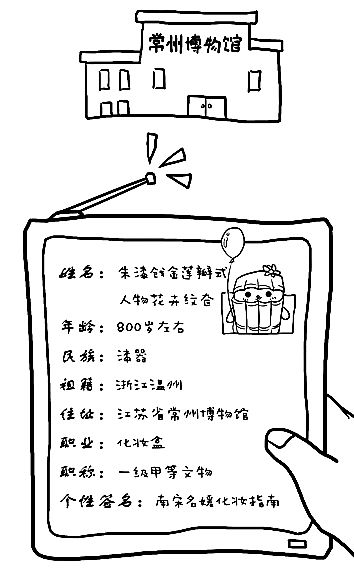 常州博物馆
姓名：朱漆戗金莲瓣式
人物花卉纹奁
年龄：800岁左右
民族：漆器
祖籍：浙江温州
住址：江苏省常州博物馆
职业：化妆盒
职称：一级甲等文物
个性签名：南宋名媛化妆指南